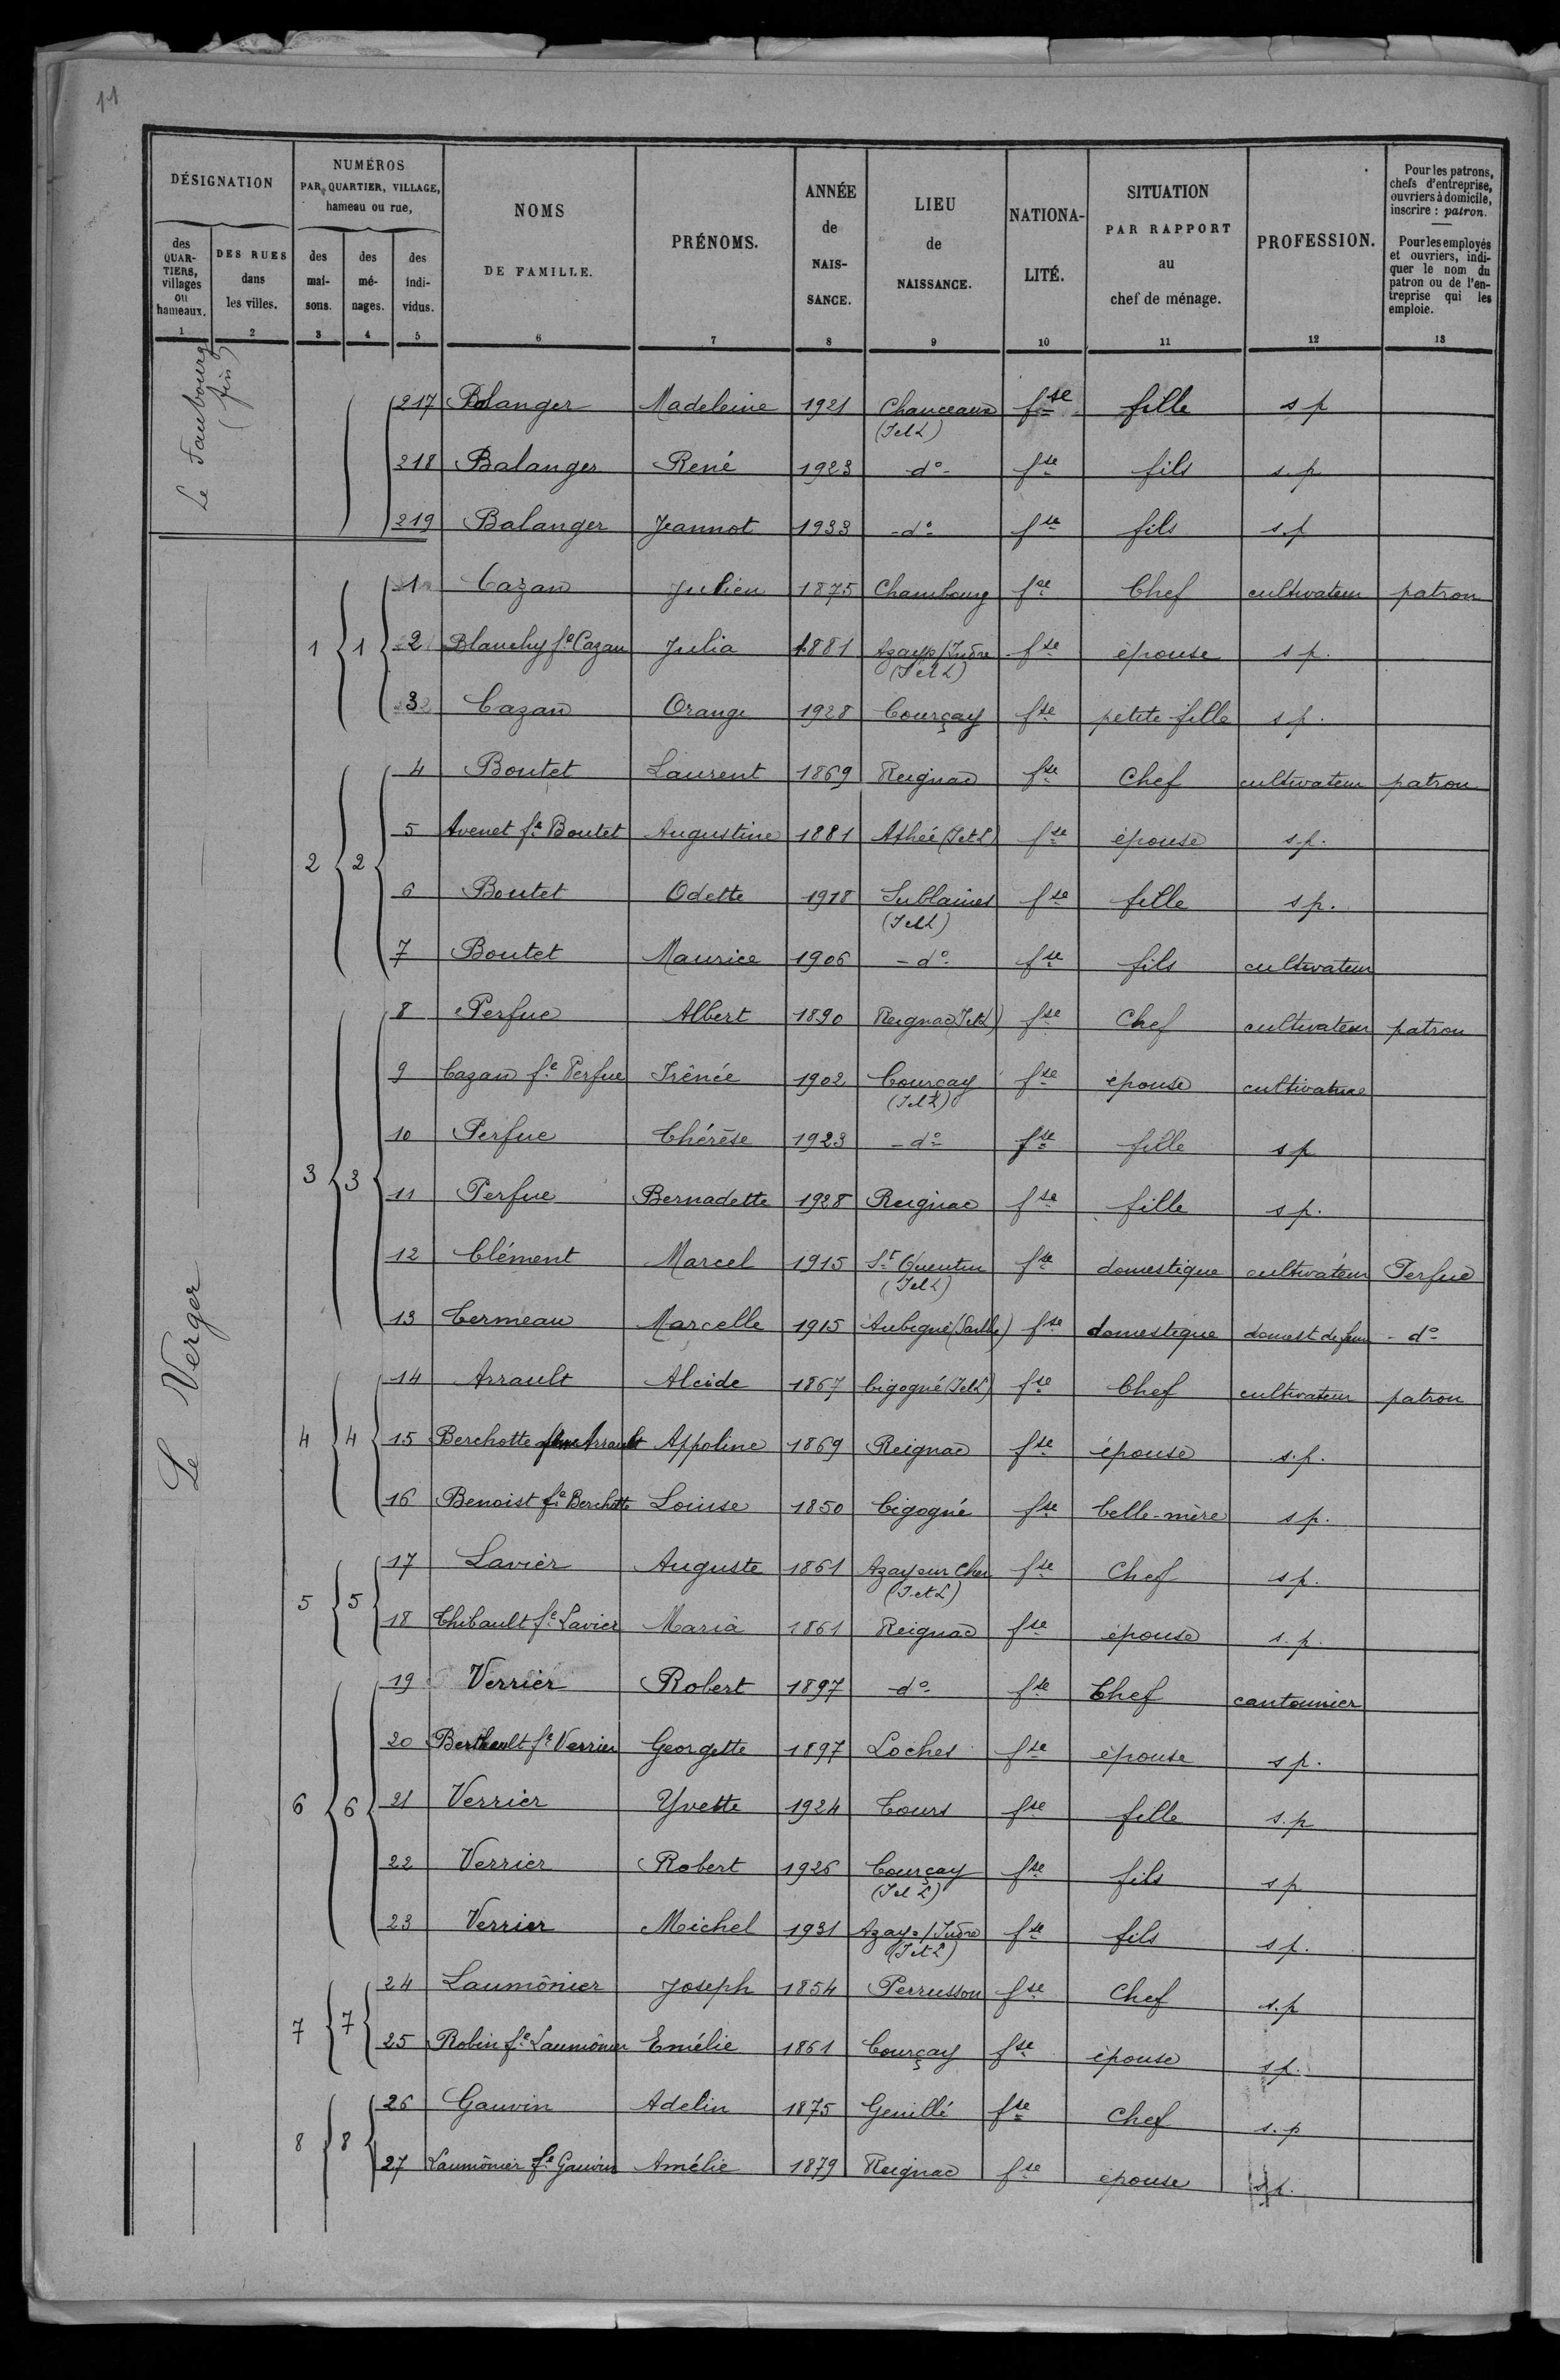 11
DÉSIGNATION
NUMÉROS
PAR QUARTIER, VILLAGE,
hameau ou rue,
NOMS
DE FAMILLE.
PRÉNOMS.
ANNÉE
de
NAIS-
SANCE.
LIEU
de
NAISSANCE.
NATIONA-
LITÉ.
SITUATION
PAR RAPPORT
au
chef de ménage.
PROFESSION.
Pour les patrons,
chefs d'entreprise,
ouvriers à domicile,
inscrire : patron.
Pour les employés
et ouvriers, indi-
quer le nom du
patron ou de l'en-
treprise qui les
emploie.
des
QUAR-
TIERS,
villages
ou
hameaux.
DES RUES
dans
les villes.
des
mai-
sons.
des
mé-
nages.
des
indi-
vidus.
1 2 3 4 5 6 7 8 9 10 11 12 13
Le Faubourg
(fin)
217 Balanger Madeleine 1921 Chanceaux (I et L) fse fille s p
218 Balanger René 1923 - d° - fse fils s. p
219 Balanger Jeannot 1933 - d° fse fils s. p
Le Verger
1 1 1 Cazan Julien 1875 Chambourg fse Chef cultivateur patron
2 Blanchy fe Cazan Julia 1881 Azay s/Indre (I et L) fse épouse s p.
3 Cazan Orange 1928 Courçay fse petite fille s p.
2 2 4 Boutet Laurent 1869 Reignac fse Chef cultivateur patron
5 Avenet fe Boutet Augustine 1881 Athée (I et L) fse épouse s. p.
6 Boutet Odette 1918 Sublaines (I et L) fse fille s p.
7 Boutet Maurice 1906 - d° fse fils cultivateur
3 3 8 Perfue Albert 1890 Reignac (I et L) fse Chef cultivateur patron
9 Cazan fe Perfue Irénée 1902 Courçay (I et L) fse épouse cultivatrice
10 Perfue Thérèse 1923 - d° fse fille s p
11 Perfue Bernadette 1928 Reignac fse fille s p.
12 Clément Marcel 1915 St Quentin (I et L) fse domestique cultivateur Perfue
13 Termeau Marcelle 1915 Aubigné (Sarthe) fse domestique domest de ferme - d°
4 4 14 Arrault Alcide 1867 Cigogné (I et L) fse Chef cultivateur patron
15 Berchotte fme Arrault Appoline 1869 Reignac fse épouse s. p.
16 Benoist fe Berchotte Louise 1850 Cigogné fse belle-mère s p.
5 5 17 Lavier Auguste 1861 Azay sur Cher (I et L) fse Chef s p.
18 Thibault fe Lavier Maria 1861 Reignac fse épouse s. p.
6 6 19 Verrier Robert 1897 - d° fse Chef cantonnier
20 Berthault fe Verrier Georgette 1897 Loches fse épouse s p.
21 Verrier Yvette 1924 Tours fse fille s. p
22 Verrier Robert 1926 Courçay (I et L) fse fils s p
23 Verrier Michel 1931 Azay s/Indre (I et L) fse fils s p.
7 7 24 Laumônier Joseph 1854 Perrusson fse Chef s. p
25 Robin fe Laumônier Emélie 1861 Courçay fse épouse s p.
8 8 26 Gauvin Adelin 1875 Genillé fse Chef s. p
27 Laumônier fe Gauvin Amélie 1879 Reignac fse épouse s p.